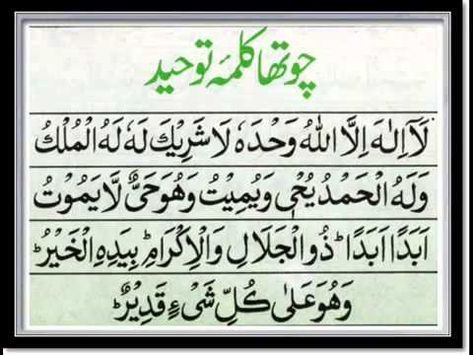 چوتھا کلمہ توحید
لَآ اِلٰهَ اِلَّا اللّٰهُ وَحْدَهٗ لَا شَرِيْكَ لَهٗ لَهُ الْمُلْكُ
وَلَهُ الْحَمْدُ يُحْيٖ وَيُمِيْتُ وَهُوَ حَیٌّ لَّا يَمُوْتُ
اَبَدًا اَبَدًاؕ ذُو الْجَلَالِ وَالْاِكْرَامِؕ بِيَدِهِ الْخَيْرُؕ
وَهُوَ عَلٰی كُلِّ شَیْءٍ قَدِيْرٌؕ